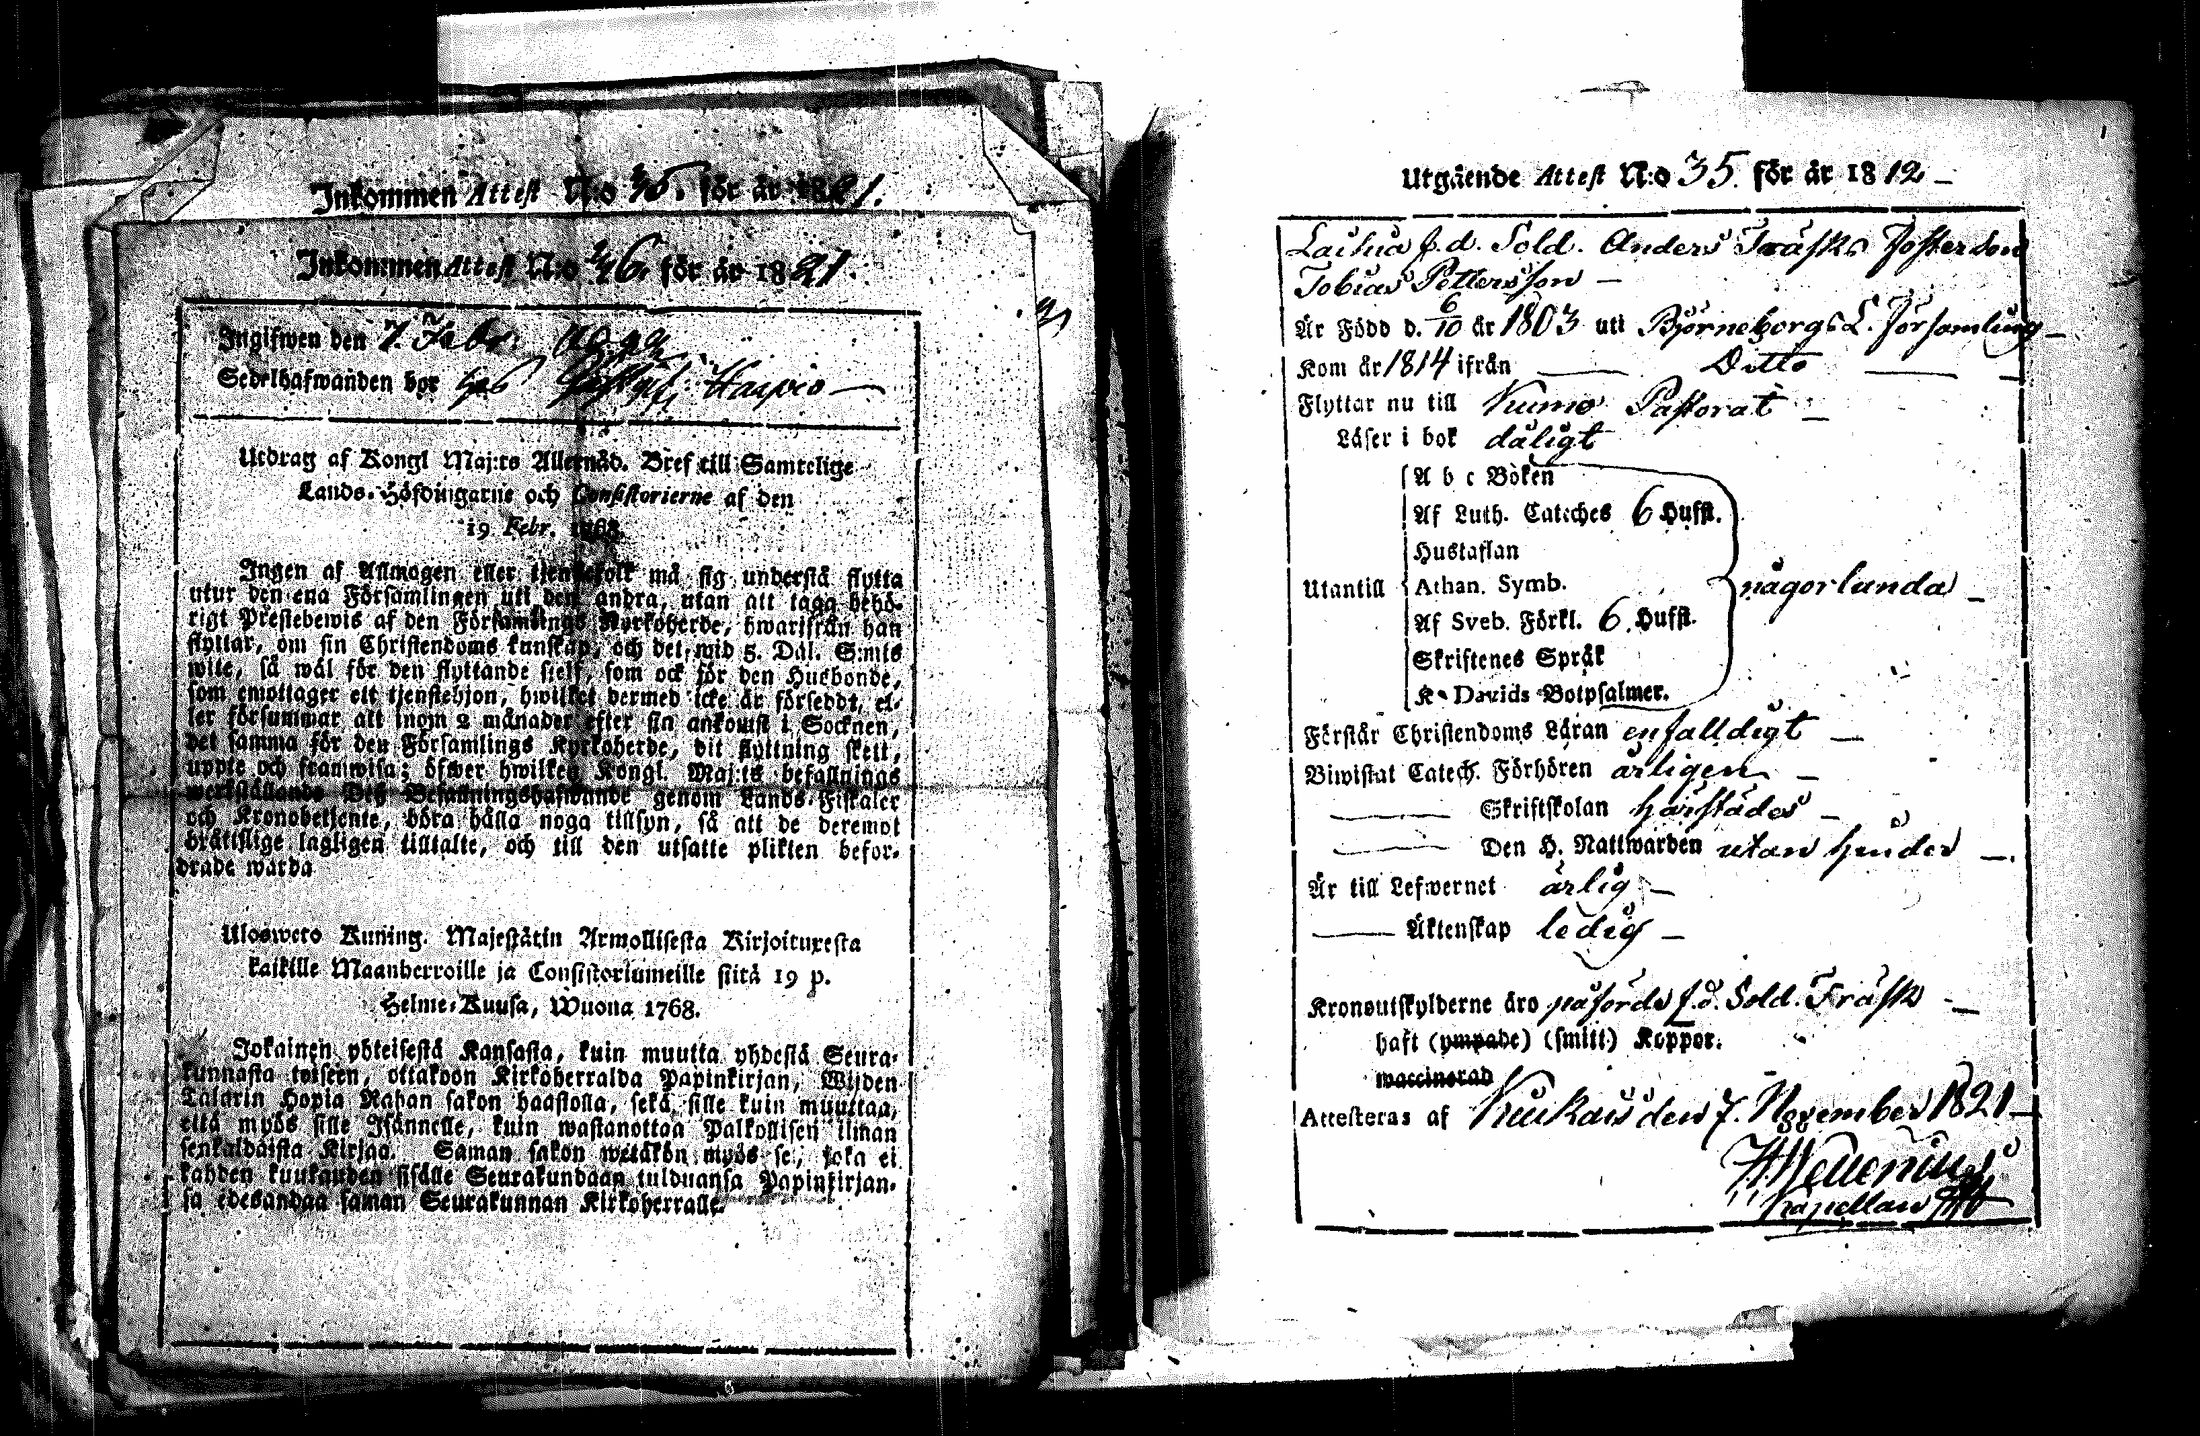 Inkommen Attest N:o 36. för år 1821.
Inkommen Attest N:o 36. för år 1821.
Ingifwen den 7. Febr.
Sedelhafwanden bor hos Haapio
Utdrag af Kongl Maj:ts Allernåd. Bref till Samtelige
Lands-Höfdingarne och Consistorierne af den
19 Febr. 1768.
Ingen af Allmogen eller tjenstefolk må sig understå flytta
utur den ena Församlingen uti den andra, utan att taga behö-
rigt Prestebewis af den Församlings Kyrkoherde, hwarifrån han
flyttar, om sin Christendoms kunskap, och det wid 5. Dal. S:mts
wite, så wäl för den flyttande sjelf, som ock för den Husbonde,
som emottager ett tjenstehjon, hwilket dermed icke är försedt, el-
ler försummar att inom 2 månader efter sin ankomst i Socknen,
det samma för den Församlings Kyrkoherde, dit flyttning skett,
uppte och framwisa; öfwer hwilket Kongl. Maj:ts befallnings
werkställande Deß Befallningshafwande genom Lands-Fiskaler
och Kronobetjente, böra hålla noga tillsyn, så att de deremot
brättslige lagligen tilltalte, och till den utsatte plikten befor-
drade warda
Uloswето Kuning. Majestätin Armollisesta Kirjoituxesta
kaikille Maanherroille ja Consistoriumeille siitä 19 p.
Helme-Kuusa, Wuona 1768.
Jokainen yhteisestä Kansasta, kuin muutta yhdestä Seura-
kunnasta toiseen, ottakoon Kirkoherralda Papinkirjan, Wijden
Talarin Hopia Rahan sakon haastolla, sekä sille kuin muuttaa,
että myös sille Isännelle, kuin wastanottaa Palkollisen ilman
senkaldaista Kirjaa. Saman sakon wetäkön myös se, joka ei
kahden kuukauden sisälle Seurakundaan tulduansa Papinkirjan-
sa edesandaa saman Seurakunnan Kirkoherralle.
Utgående Attest N:o 35. för år 1812 -
f.d. Sold. Anders Träsks Fosterson
Tobias Pettersson -
Är Född d. 6/10 år 1803 uti Björneborgs L. Församling -
Kom år 1814 ifrån Ditto
Flyttar nu till Kumo Pastorat -
Läser i bok dåligt
A b c Boken
Af Luth. Cateches 6 Hufst.
Hustaflan
Utantill Athan. Symb. någorlunda -
Af Sveb. Förkl. 6. Hufst.
Skriftenes Språk
K. Davids Botpsalmer.
Förstår Christendoms Läran enfalldigt -
Biwistat Catech. Förhören årligen -
Skriftskolan härstädes -
Den H. Nattwarden utan hinder -.
Är till Lefwernet ärlig -
Äktenskap ledig -
Kronoutskylderne äro påförde f.d. Sold. Träsk -
haft (ympade) (smitt) Koppor.
waccinerad
Attesteras af Kiukais den 7. November 1821 -
Kapellan